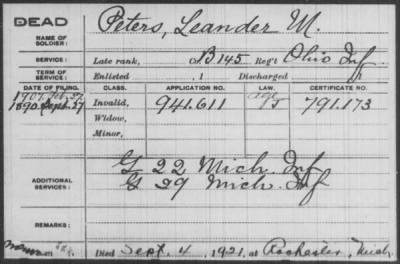 DEAD
NAME OF SOLDIER:
Peters, Leander M.
SERVICE:
Late rank, Co. B 145 Reg't Ohio Inf.
TERM OF SERVICE:
Enlisted , 1 Discharged , 1
DATE OF FILING. CLASS. APPLICATION NO. LAW. CERTIFICATE NO.
1907 Feb. 27
1890 Sept. 27 Invalid, 941.611 791.173
Widow,
Minor,
ADDITIONAL SERVICES:
G 22 Mich. Inf
G 29 Mich. Inf
REMARKS:
Died Sept. 4, 1921, at Rochester, Mich.